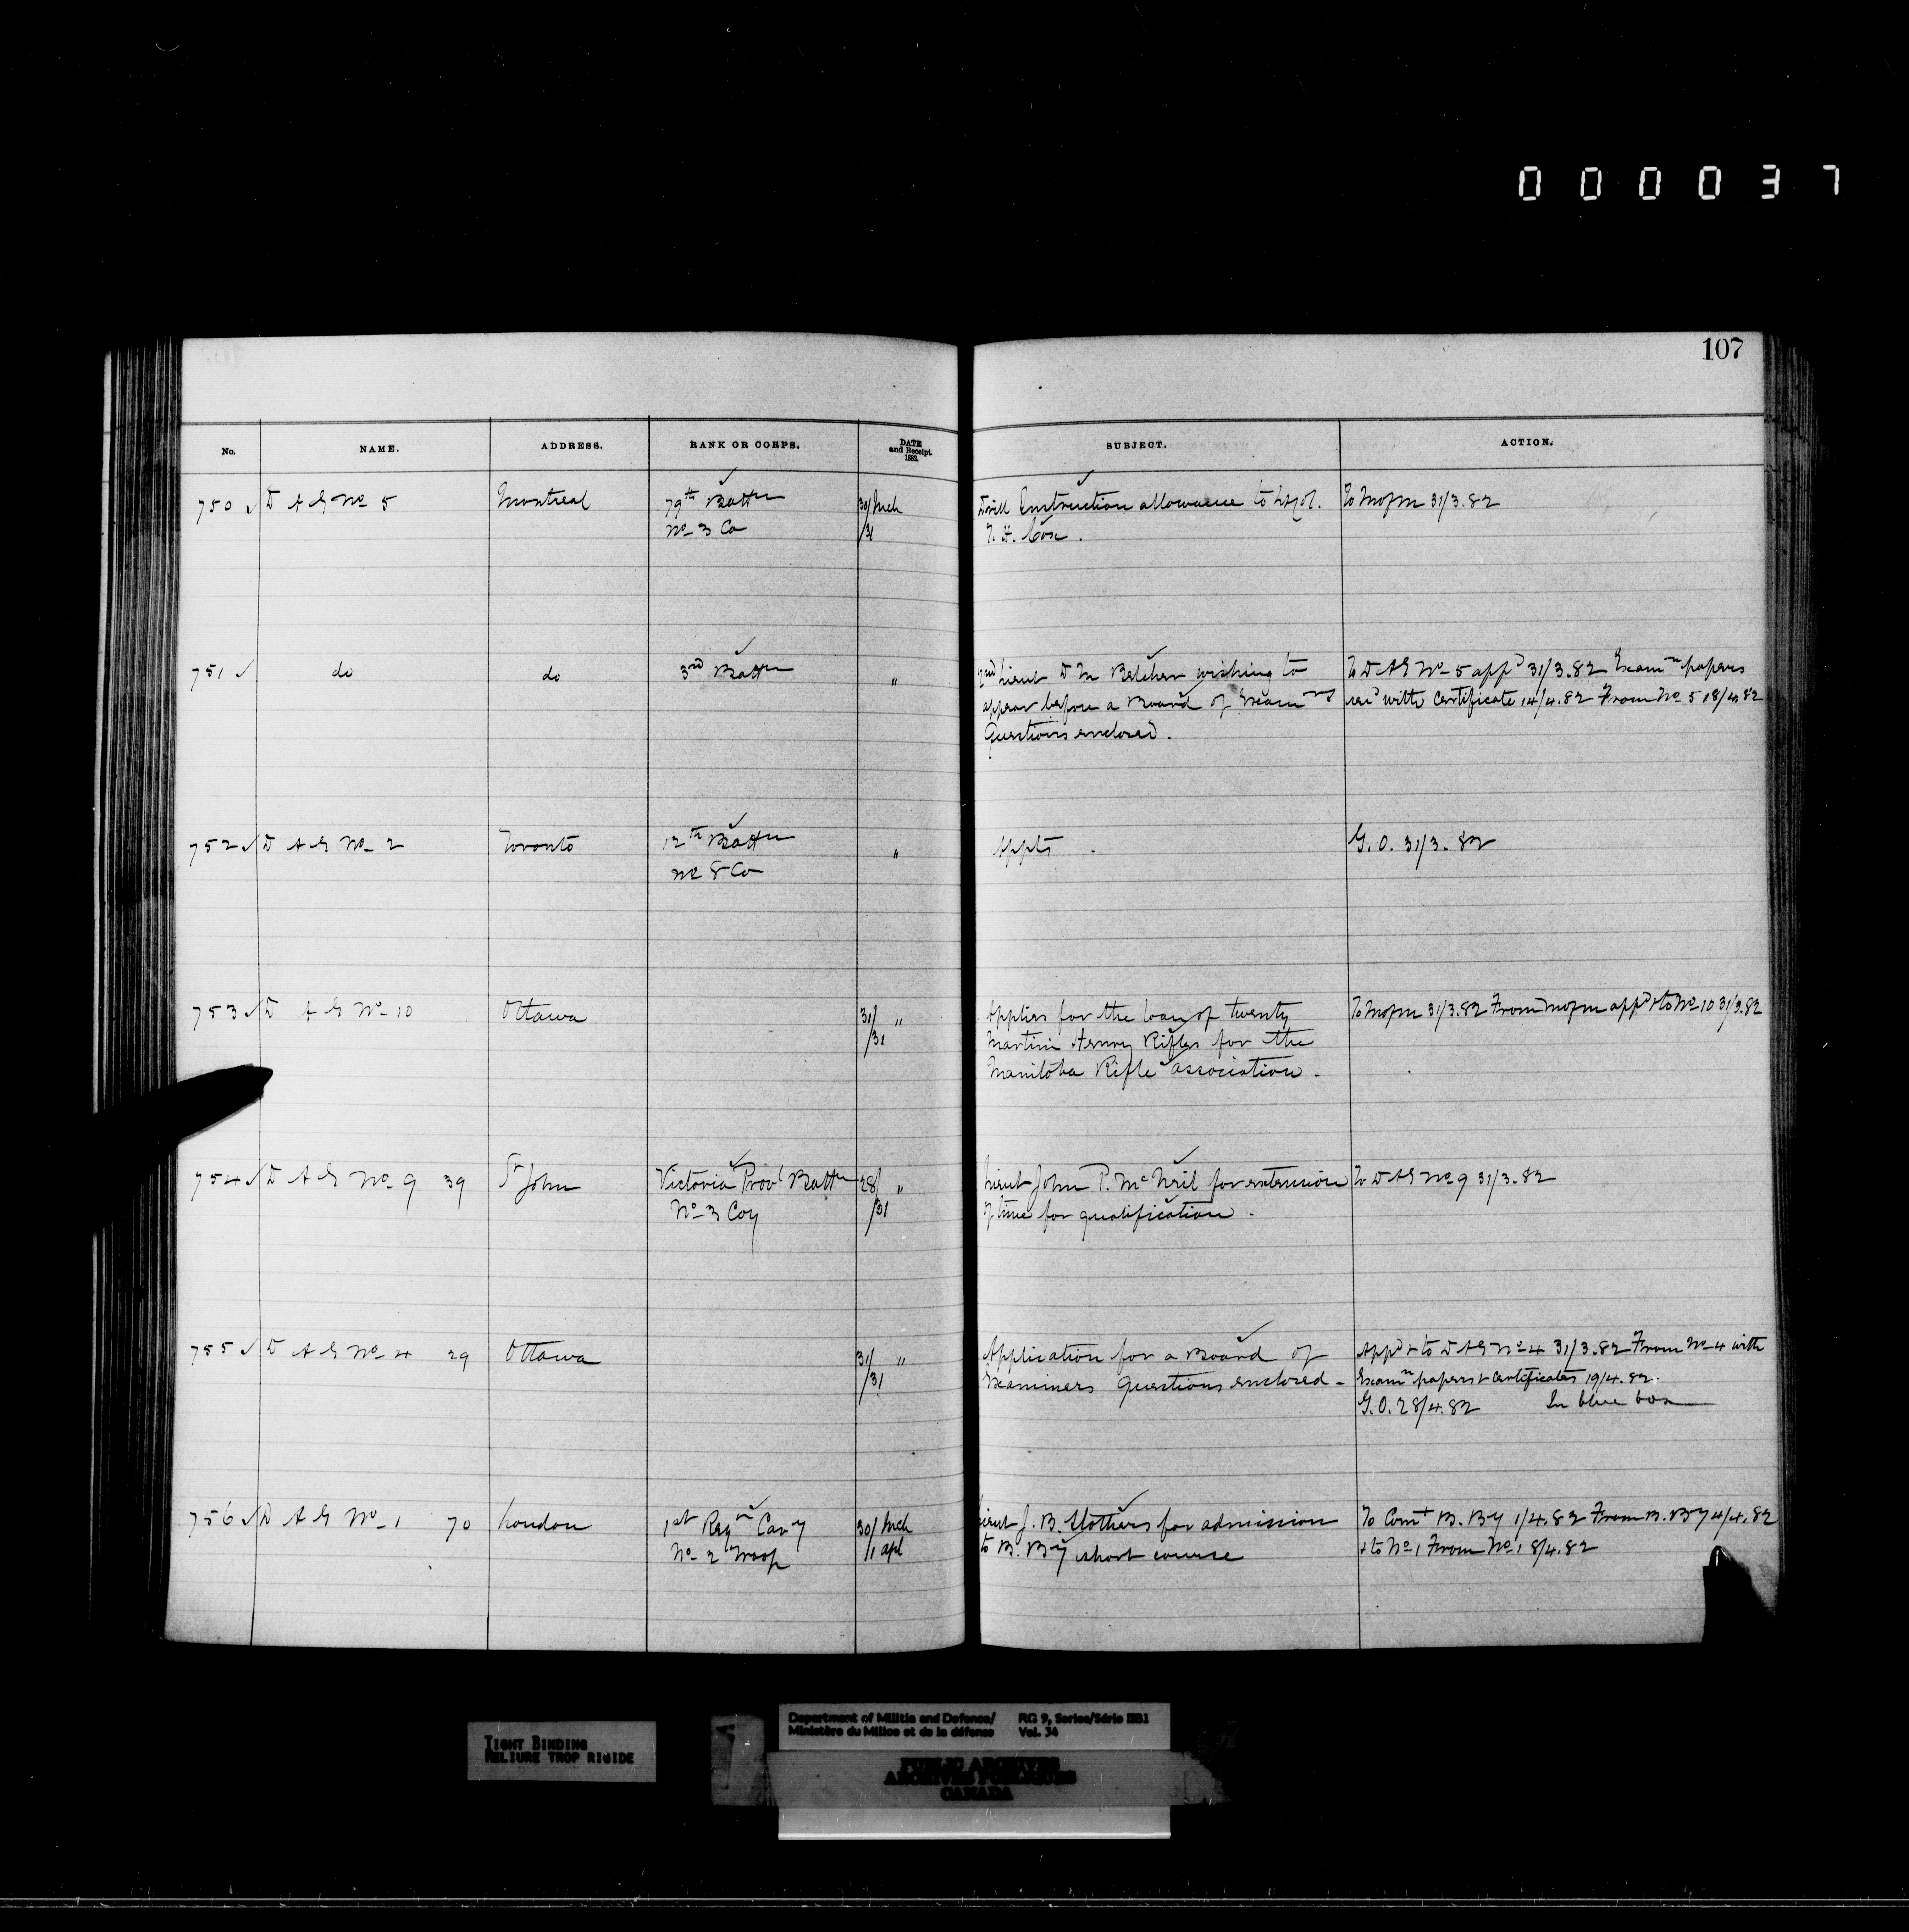 000037
107
No. NAME. ADDRESS. RANK OR CORPS. DATE and Receipt. 1882. SUBJECT. ACTION.
750 ✓ D A G No 5 Montreal 79th Battn 30/Mch Drill Instruction allowance to Lt Col. To MofM 31/3.82
No 3 Co /31 T. H. Cox.
751 ✓ do do 3rd Battn " 2nd Lieut D M Belcher wishing to To D A G No 5 appd 31/3.82 Examn papers
appear before a Board of Examrs recd with Certificate 14/4.82 From No 5 18/4.82
Questions enclosed.
752 ✓ D A G No 2 Toronto 12th Battn " Appts. G. O. 31/3.82
No 8 Co
753 ✓ D A G No 10 Ottawa 31/ " Applies for the loan of twenty To MofM 31/3.82 From MofM appd & to No 10 31/3.82
/31 Martini Henry Rifles for the
Manitoba Rifle association -
754 ✓ D A G No 9 39 St John Victoria Provl Battn 28/ " Lieut John P. McNeil for extension To D A G No 9 31/3.82
No 3 Coy /31 of time for qualification.
755 ✓ D A G No 4 29 Ottawa 31/ " Application for a Board of Appd & to D A G No 4 31/3.82 From No 4 with
/31 Examiners Questions enclosed - Examn papers & Certificates 19/4.82.
G. O. 28/4.82 In blue box
756 ✓ D A G No 1 70 London 1st Regn Cavy 30/ Mch Lieut J. B. for admission To Comt B. By 1/4.82 From B. By 4/4.82
No 2 Troop /1 apl to B. By short course & to No 1 From No 1 8/4.82
TIGHT BINDING
RELIURE TROP RIGIDE
Department of Militia and Defence/ RG 9, Series/Série IIB1
Ministère du Milice et de la défense Vol. 34
PUBLIC ARCHIVES
ARCHIVES PUBLIQUES
CANADA